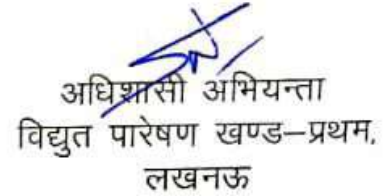 अधिशासी अभियन्ता
विद्युत पारेषण खण्ड–प्रथम,
लखनऊ